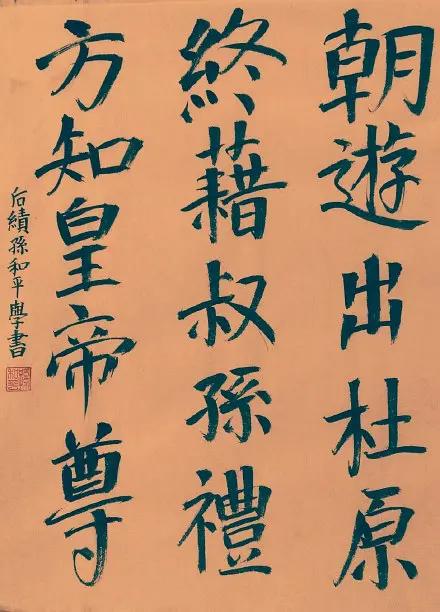 朝遊出杜原
終藉叔孫禮
方知皇帝尊
后績孫和平學書